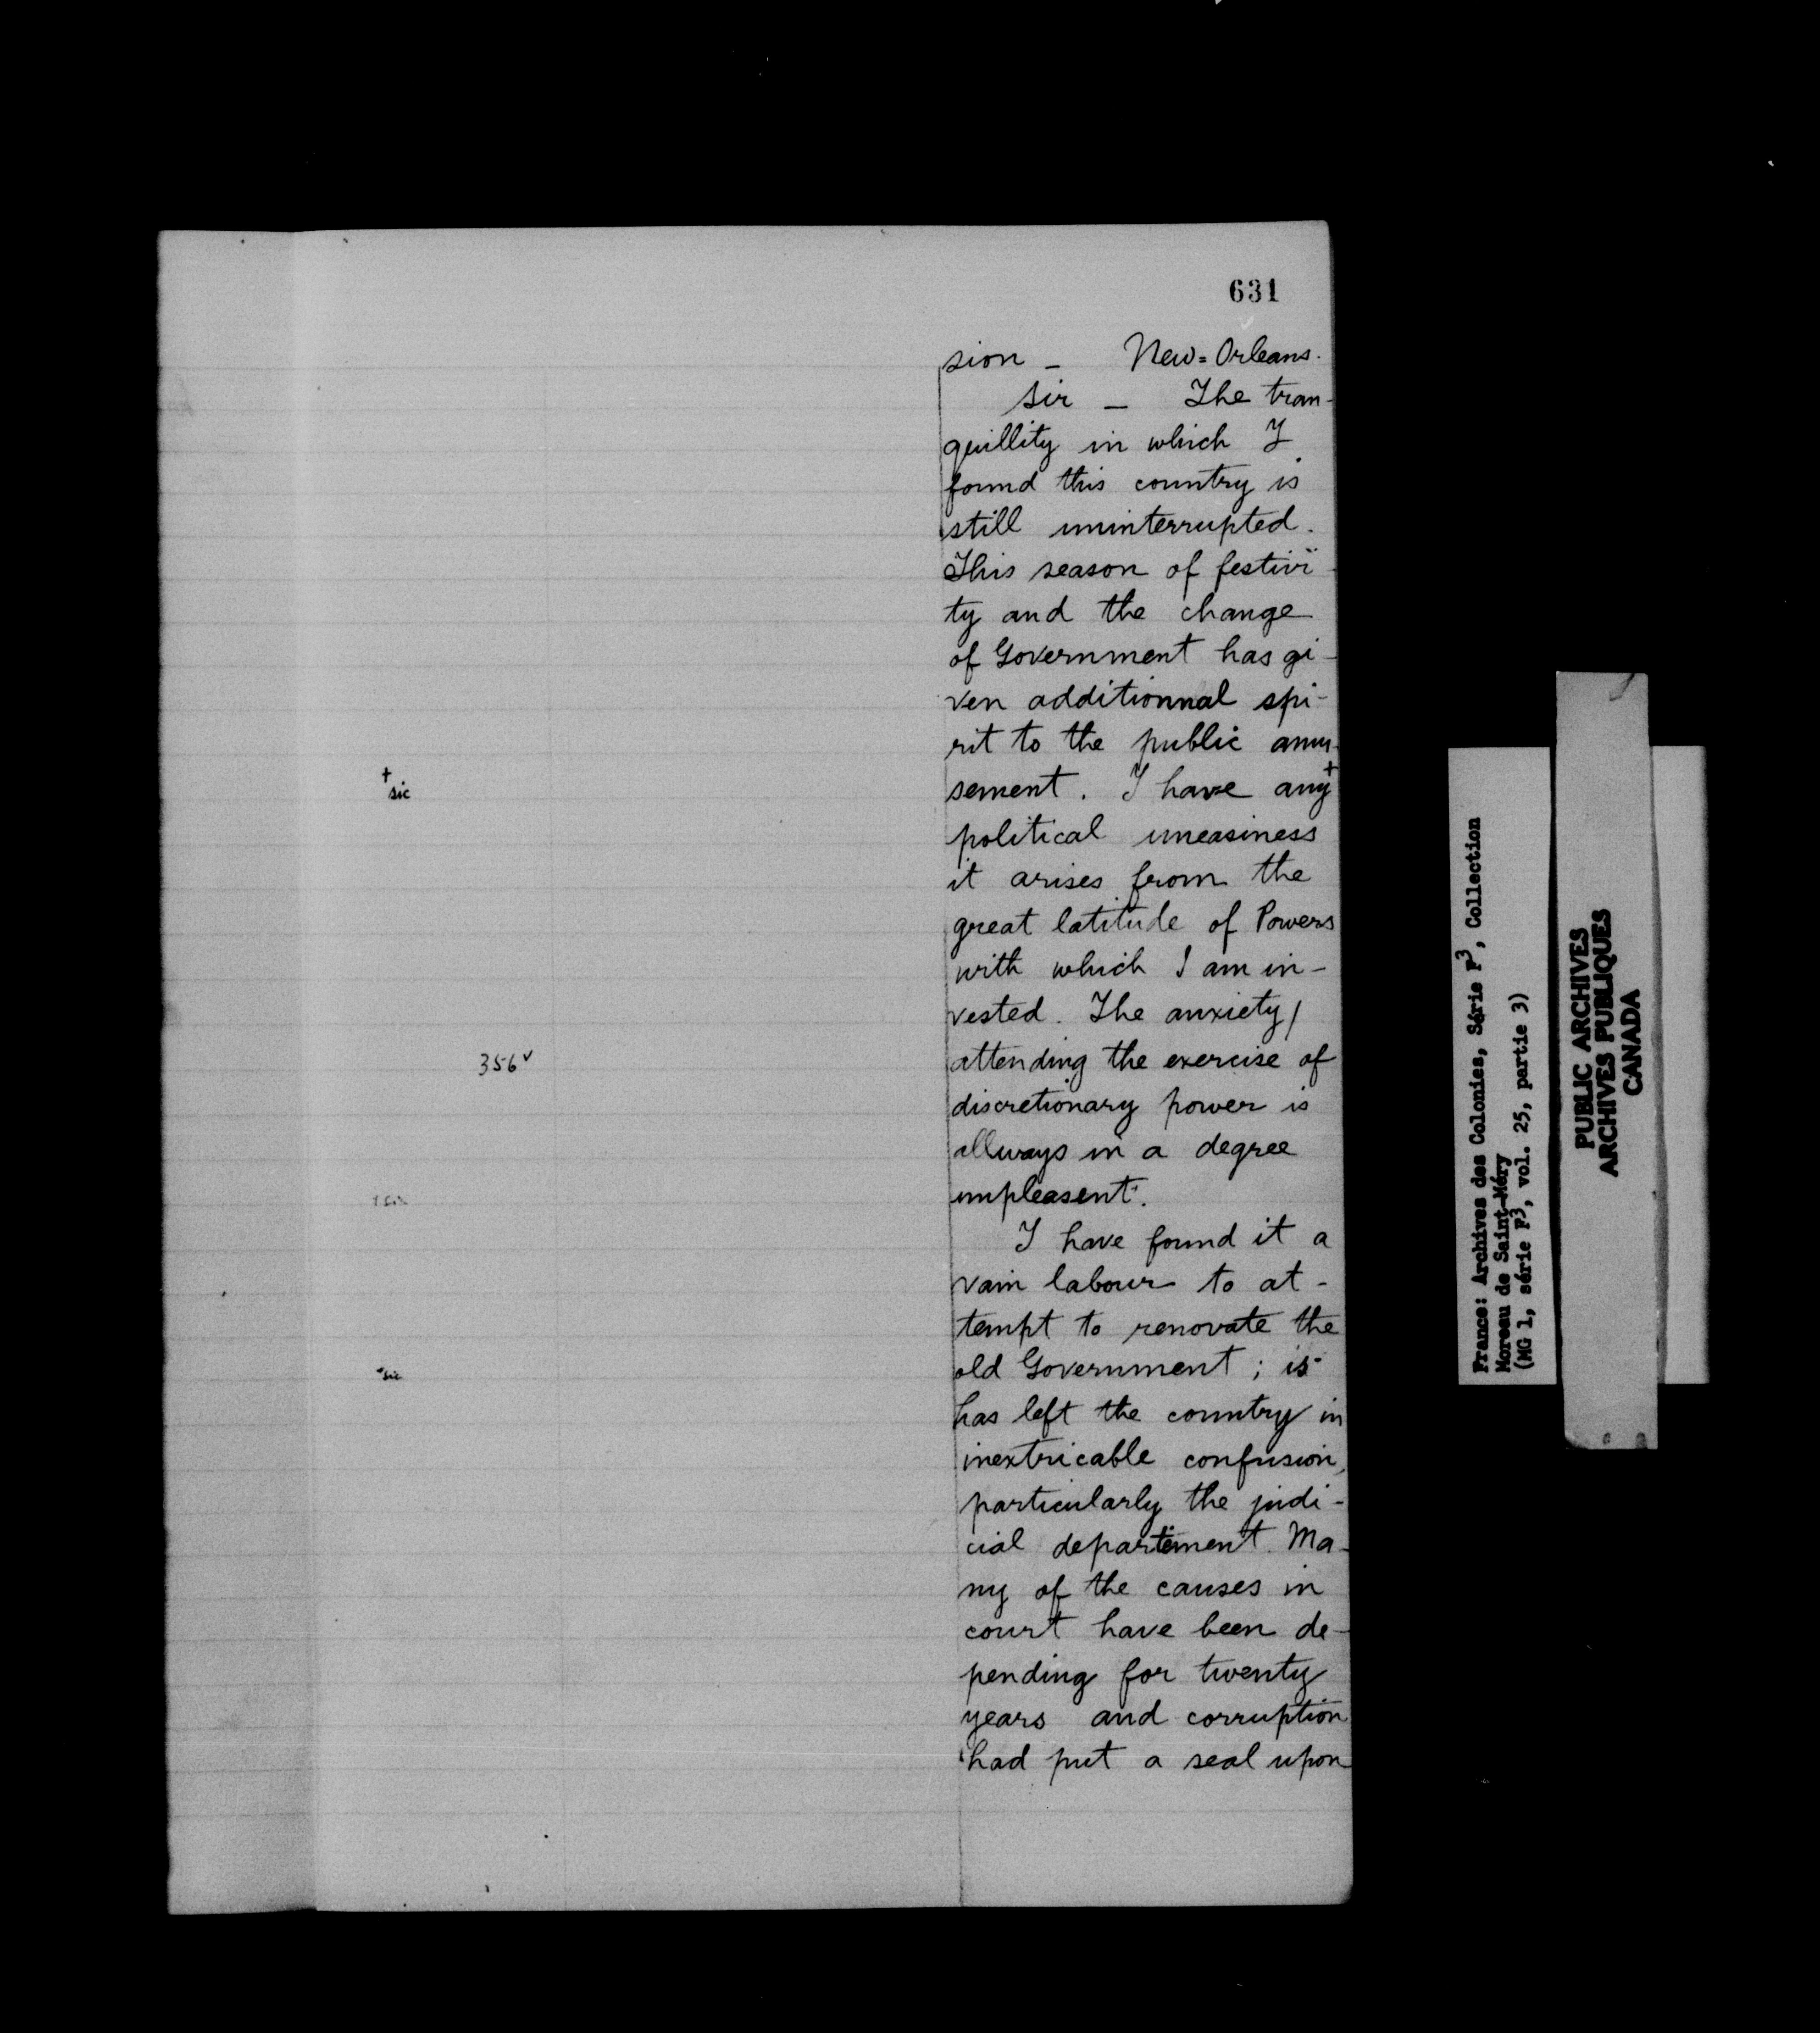 631
sion _ New=Orleans.
Sir _ The tran-
quillity in which I
found this country is
still uninterrupted.
This season of festivi-
ty and the change
of Government has gi-
ven additionnal spi-
rit to the public amu-
sement. I have any+
+ sic
political uneasiness
it arises from the
great latitude of Powers
with which I am in-
vested. The anxiety/
356v
attending the exercise of
discretionary power is
allways in a degree
unpleasent+.
+ sic
I have found it a
vain labour to at-
tempt to renovate the
old Government; is+
+ sic
has left the country in
inextricable confusion,
particularly the judi-
cial departëment. Ma-
ny of the causes in
court have been de-
pending for twenty
years and corruption
had put a seal upon
France: Archives des Colonies, Série F3, Collection
Moreau de Saint-Méry
(MG 1, série F3, vol. 25, partie 3)
PUBLIC ARCHIVES
ARCHIVES PUBLIQUES
CANADA